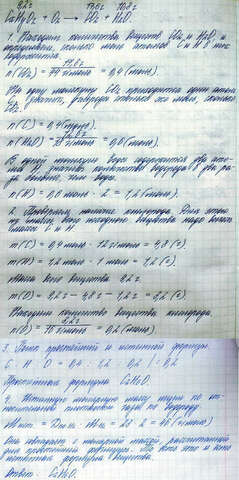 9,2г 17,6г 10,8г
CxHyOz + O2 → CO2 + H2O.
1. Находим количества веществ CO2 и H2O, и
определяем, сколько моль атомов C и H в них
содержится.
n(CO2) = 17,6г / 44 г/моль = 0,4 (моль).
На одну молекулу CO2 приходится один атом
C, значит, углерода столько же моль, сколько
CO2.
n(C) = 0,4 (моль).
n(H2O) = = 0,6 (моль).
В одной молекуле воды содержится два ато-
ма H, значит количество водорода в два ра-
за больше, чем воды.
n(H) = 0,6 моль · 2 = 1,2 (моль).
2. Проверяем наличие кислорода. Для этого
из массы всего исходного вещества надо вычесть
массы C и H
m(C) = 0,4 моль · 12 г/моль = 4,8 (г).
m(H) = 1,2 моль · 1 моль = 1,2 (г).
Масса всего вещества 9,2г
m(O) = 9,2г - 4,8г - 1,2г = 3,2 (г).
Находим количество вещества кислорода.
n(O) = = 0,2 (моль)
3. простейшей и истинной формулы.
C : H : O = 0,4 : 1,2 : 0,2
Простейшая формула C2H6O.
4. Истинную молярную массу ищем по от-
носительной плотности газа по водороду
Она совпадает с молярной массой, рассчитанной
для простейшей формулы.
истинная формула вещества.
Ответ: C2H6O.